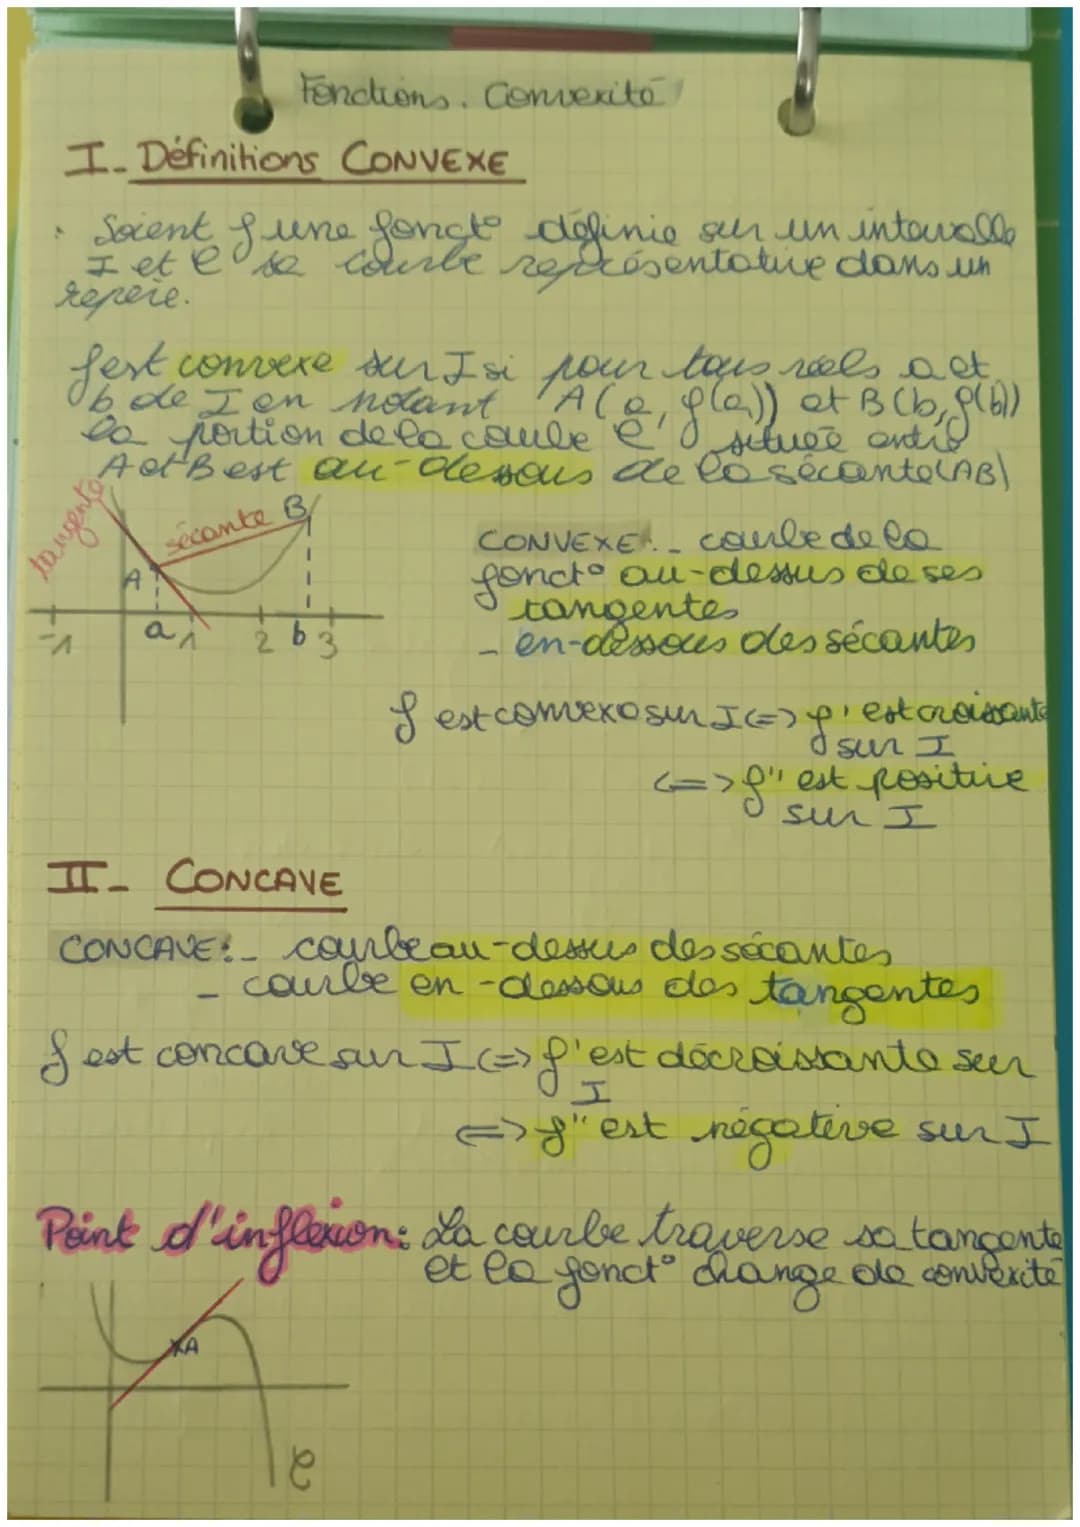 Fonctions. Convexité
I_ Définitions CONVEXE
. Soient f une fonct° définie sur un intervalle
I et C sa courbe représentative dans un
repère.
f est convexe sur I si pour tous réels a et
b de I en notant A(a, f(a)) et B(b, f(b))
la portion de la courbe C située entre
A et B est au-dessous de la sécante (AB)
tangente
sécante B
A
-1 a 1 2 b 3
CONVEXE:_ courbe de la
fonct° au-dessus de ses
tangentes
_ en-dessous des sécantes
f est convexe sur I <=> f' est croissante
sur I
<=> f'' est positive
sur I
II_ CONCAVE
CONCAVE:_ courbe au-dessus des sécantes
_ courbe en-dessous des tangentes
f est concave sur I <=> f' est décroissante sur
I
<=> f'' est négative sur I
Point d'inflexion: La courbe traverse sa tangente
et la fonct° change de convexité
xA
C